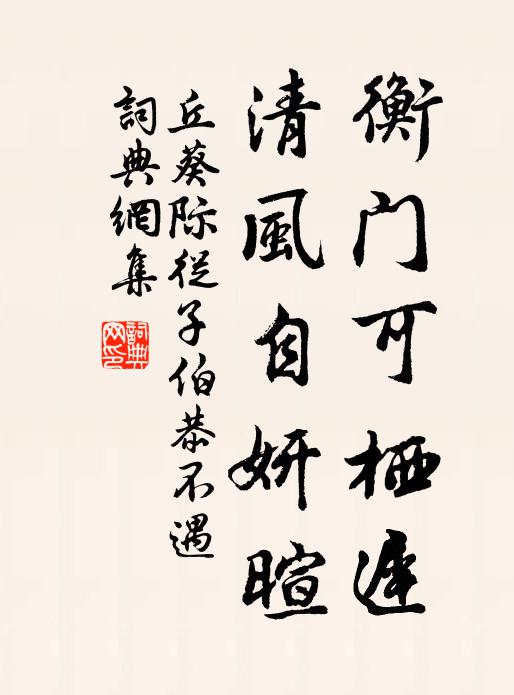 衡门可栖遲
清風自妍暄
丘葵际從子伯恭不遇
詞典網集
詞典网印